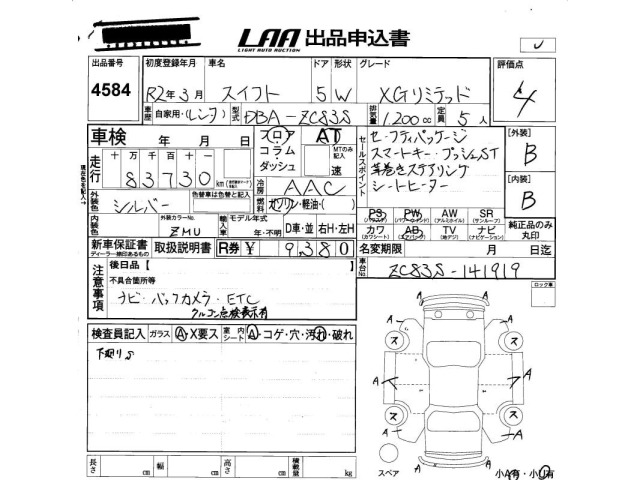 LAA 出品申込書
LIGHT AUTO AUCTION
出品番号 初度登録年月 車名 ドア 形状 グレード 評価点
4584 R2年3月 スイフト 5 W XGリミテッド 4
車歴 自家用・(レンタ) 型式 DBA-ZC83S 排気量 1200cc 定員 5人
車検 年 月 日 フロア AT セールスポイント セーフティパッケージ [外装]
コラム・ MTのみ記入 スマートキー・プッシュST B
走行 十 万 千 百 十 一 ダッシュ 速 革巻きステアリング [内装]
83730 km 冷房 AAC シートヒーター B
外装色 シルバー 色替車は色替と記入 燃料 ガソリン・軽油・( )
PS PW AW SR
(パワステ) (パワーウインド) (アルミホイール) (サンルーフ)
内装色 外装カラーNo. ZMU 輸入車 モデル年式 年・不明 D車・並 右H・左H カワ AB TV ナビ 純正品のみ丸印
(カワシート) (エアバッグ) (地デジ) (ナビゲーション)
新車保証書 取扱説明書 R券 ¥ 9,380 名変期限 月 日迄
ディーラー捺印あるもの
車台No. ZC83S-141919
注意事項 後日品【 】 ロック車
不具合箇所等
ナビ・バックカメラ・ETC
クルコン点検表示有
検査員記入 ガラス A・X要ス 室内シート A・コゲ・穴・汚れ・破れ
下廻りS
A A
ス ス
A A A A
ス ス
A A
長さ cm 幅 cm 高さ cm 積載量 kg
スペア 小A有・小U有